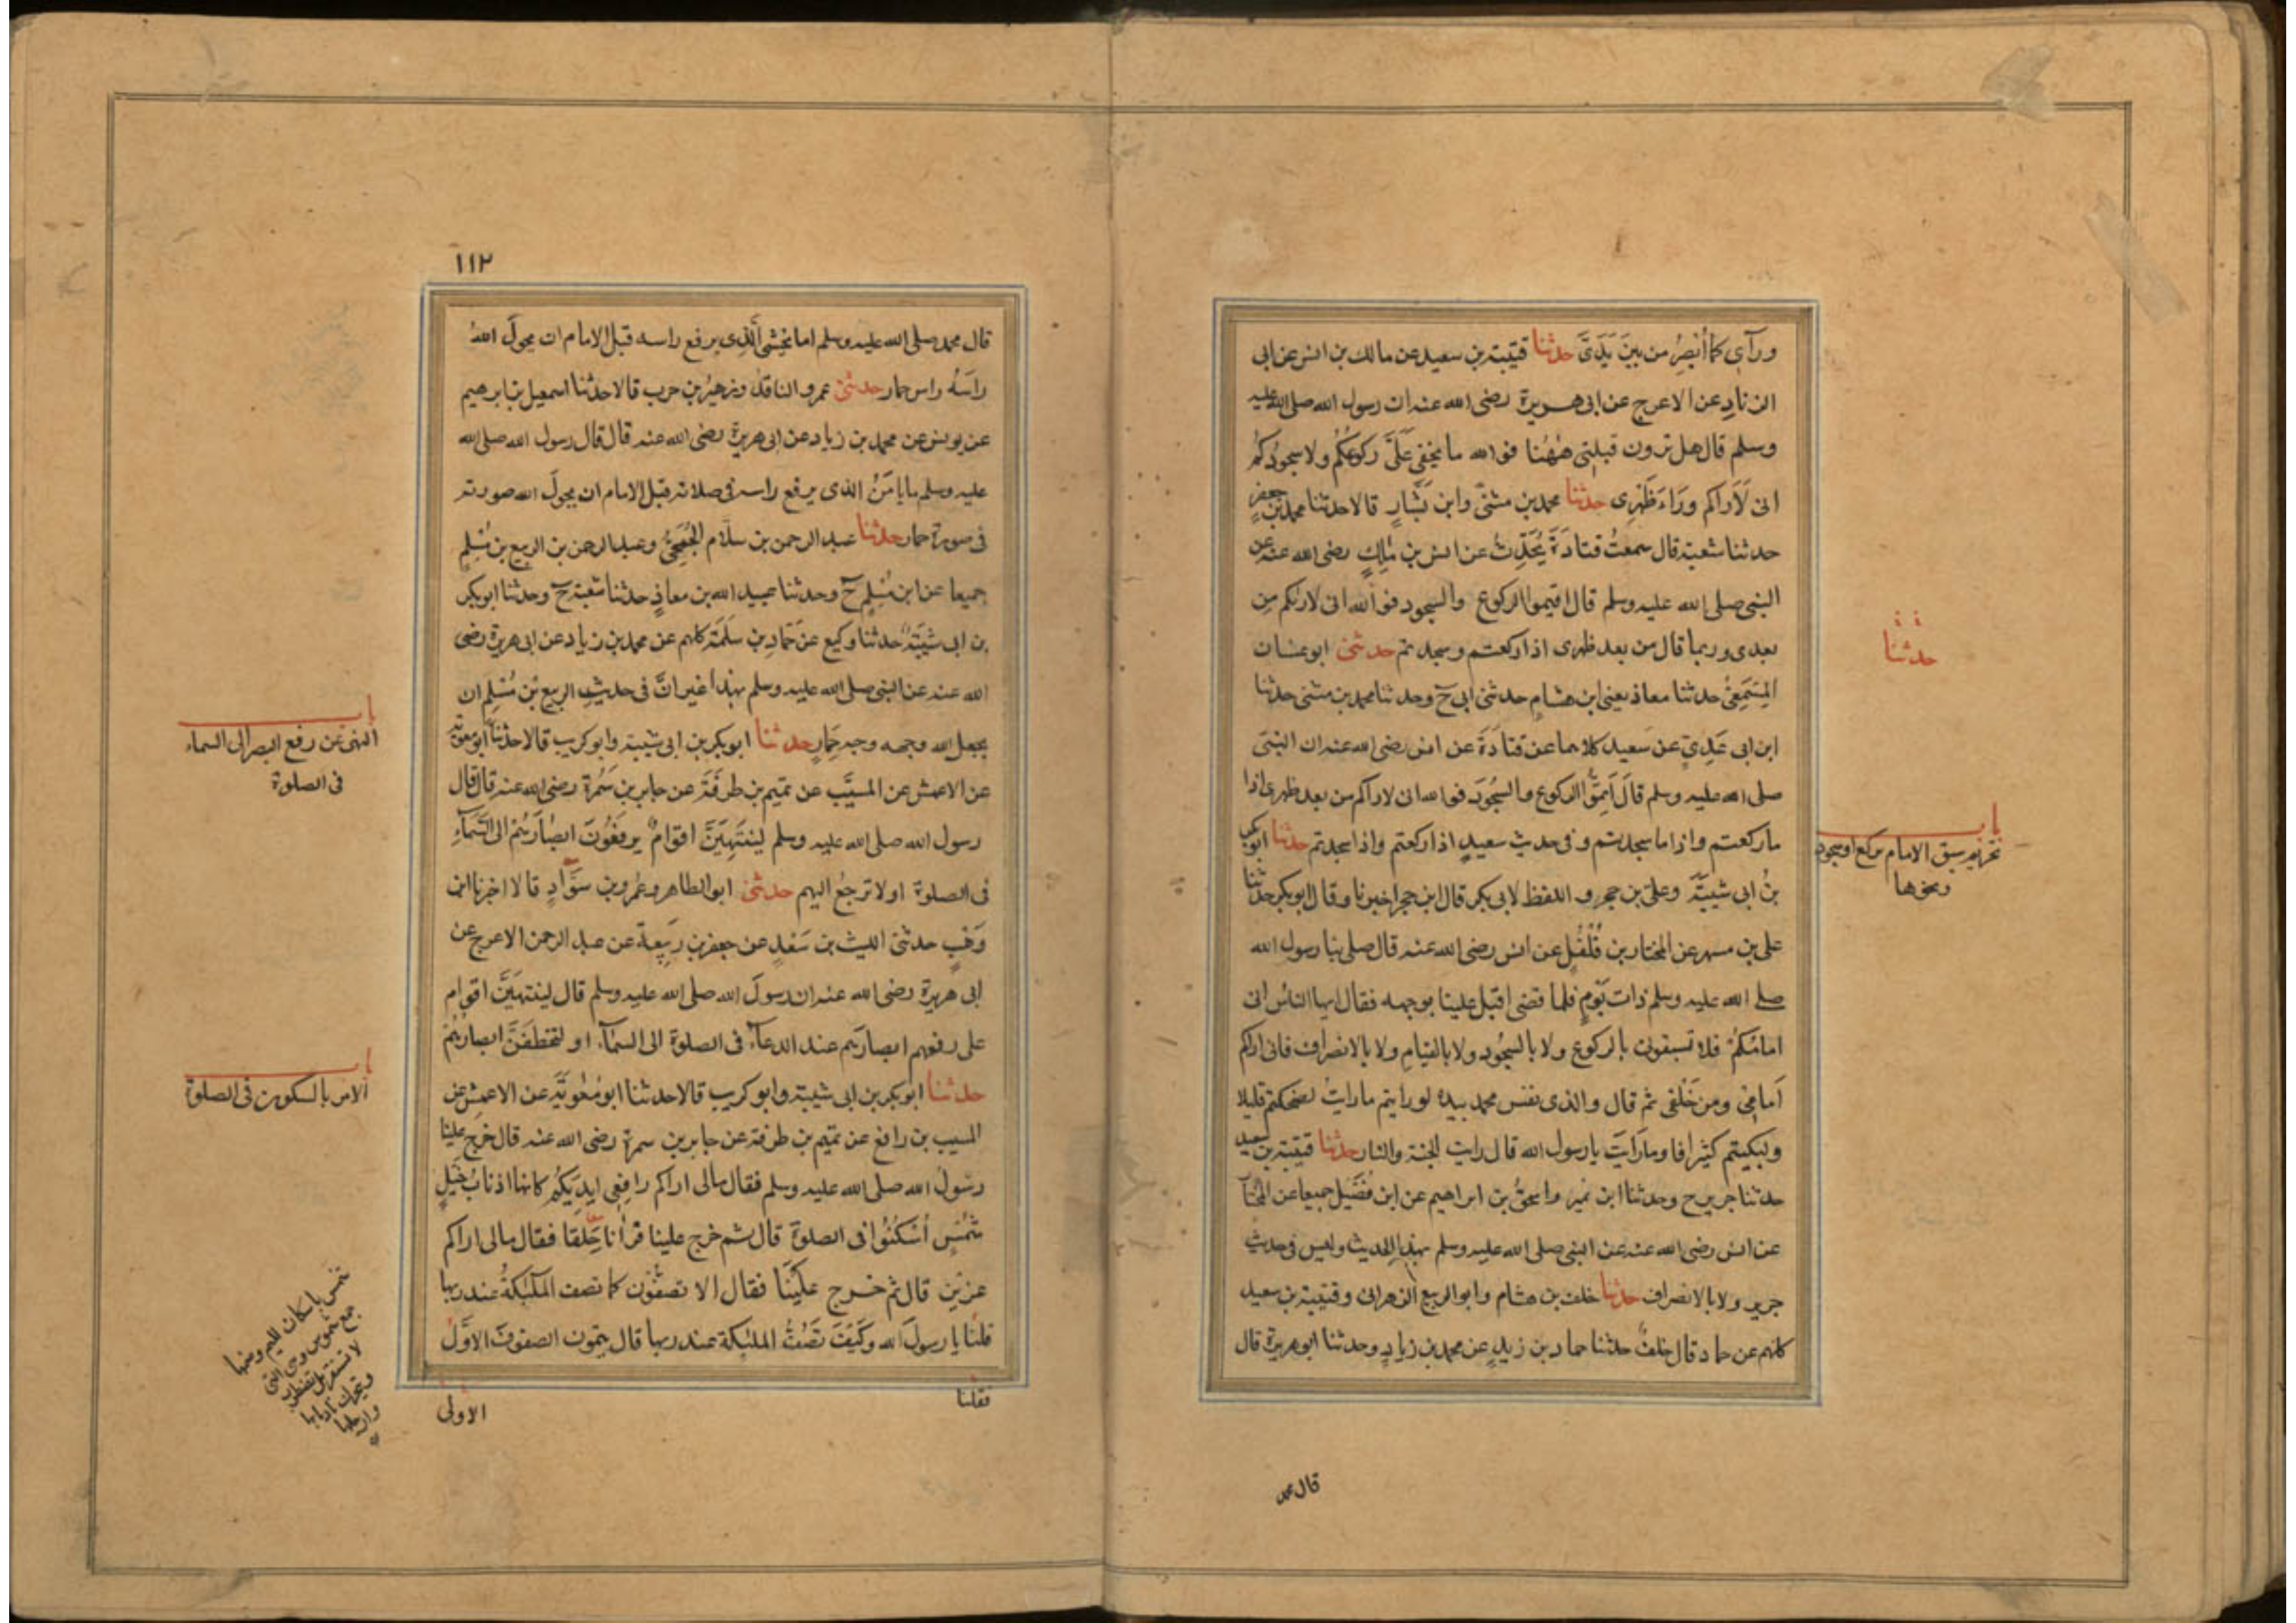 ورآى كما أُبْصِرُ من بينَ يَدَىَّ حدثنا قتيبة بن سعيد عن مالك بن انس عن ابى
الزنادِ عن الاعرج عن ابى هريرة رضى الله عنه ان رسول الله صلى الله عليه
وسلم قال هل ترون قبلتى هٰهُنا فوالله ما يخفى عَلَىَّ ركوعُكُم ولا سجودُكُم
انى لَاَراكم وَرَاءَ ظَهْرِى حدثنا محمد بن مثنىّ وابن بَشَّارٍ قالا حدثنا محمد بن جعفرٍ
حدثنا شعبة قال سمعتُ قتادَةَ يُحَدِّثُ عن انس بن مٰلِكٍ رضى الله عنه عن
النبى صلى الله عليه وسلم قال اقيموا الركوع والسجود فوالله انى لاركم مِن
بعدى وربما قال من بعد ظهرى اذا ركعتم وسجدتم حدثنى ابو غسان
المِسْمَعِىُّ حدثنا معاذ يعنى ابن هشام حدثنى ابى ح وحدثنا محمد بن مثنى حدثنا
ابن ابى عَدِىٍّ عن سَعيد كلاهما عن قتادَةَ عن انس رضى الله عنه ان النبى
صلى الله عليه وسلم قالَ اَتِمُّوا الركوع والسجُودَ فوالله انى لاراكم من بعد ظهرى اذا
ما ركعتم واذا ما سجدتم وفى حديث سعيدٍ اذا ركعتم واذا سجدتم حدثنا ابوبكر
بنُ ابى شيبَةَ وعلىّ بن حجر واللفظ لابى بكر قال ابن حجر اخبرنا وقال ابوبكر حدثنا
على بن مسهر عن المختار بن فُلْفُلٍ عن انس رضى الله عنه قال صلى بنا رسول الله
صلے الله عليه وسلم ذات يَوْمٍ فلما قضى اقبل علينا بوجهه فقال ايها الناسُ انى
امامُكُمْ فلا تسبقونى بالركوع ولا بالسجُود ولا بالقيامِ ولا بالانصراف فانى اراكم
اَمامِىْ ومن خَلْفى ثم قال والذى نفس محمد بيده لو رايتم ما رايتُ لضحكتم قليلا
ولبكيتم كثيرا قالوا وما رَاَيتَ يا رسول الله قال رايت الجنة والنار حدثنا قتيبة بن سعيد
حدثنا جرير ح وحدثنا ابن نمير واسحقُ بن ابراهيم عن ابن فُضَيل جميعا عن المختار
عن انس رضى الله عنه عن النبى صلى الله عليه وسلم بهذا الحديث وليس فى حديث
جرير ولا بالانصراف حدثنا خلف بن هشام وابو الربيع الزهرانى وقتيبة بن سعيد
كلهم عن حماد قال خلفٌ حدثنا حماد بن زيدٍ عن محمد بن زيادٍ وحدثنا ابو هريرة قال
قال محمد
حدثنا
باب
تحريم سبق الامام بركع او سجود
ونحوها
١١٢
قال محمد صلى الله عليه وسلم اما يخشى الَّذِى يرفع راسه قبل الامام ان يحولَ اللهُ
راسَهُ راس حمار حدثنى عمرو الناقد وزهيرُ بن حرب قالا حدثنا اسمعيل بن ابرهيم
عن يونس عن محمد بن زياد عن ابى هريرة رضى الله عنه قال قال رسول الله صلى الله
عليه وسلم ما يامَنُ الذى يرفع راسه فى صلاته قبل الامام ان يحولَ الله صورته
فى صورة حمار حدثنا عبد الرحمن بن سلّام الجُمَحِىُّ وعبد الرحمن بن الربيع بن مُسْلِمٍ
جميعا عن ابن مُسْلِم ح وحدثنا عبيد الله بن معاذٍ حدثنا شعبة ح وحدثنا ابوبكر
بن ابى شَيْبَةَ حدثنا وكيع عن حَمّادِ بن سَلَمَةَ كلهم عن محمد بن زياد عن ابى هريرة رضى
الله عنه عن النبى صلى الله عليه وسلم بهذا غير انَّ فى حديثِ الربيع بْن مُسْلِم ان
يجعل الله وجهه وجه حِمَارٍ حدثنا ابوبكر بن ابى شيبة وابو كريب قالا حدثنا ابو معوية
عن الاعمش عن المسيَّب عن تميم بن طَرَفَةَ عن جابر بن سَمُرة رضى الله عنه قال قال
رسول الله صلى الله عليه وسلم لَيَنْتَهِيَنَّ اقوامٌ يرفَعُونَ ابصَارَهُمْ الى السَّمَآءِ
فى الصلوة اولا ترجعُ اليهم حدثنى ابو الطاهر وعمرو بن سَوّادٍ قالا اخبرنا ابن
وَهْبٍ حدثنى الليث بن سَعْدٍ عن جعفر بن رَبِيعةَ عن عبد الرحمن الاعرج عن
ابى هريرة رضى الله عنه ان رسولَ الله صلى الله عليه وسلم قال لينتهيَنَّ اقوام
على رفعهم ابصارَهم عند الدعآءِ فى الصلوة الى السمآء او لتخطفَنَّ ابصارُهُمْ
حدثنا ابوبكر بن ابى شيبة وابو كريب قالا حدثنا ابو مُعٰوِيَةَ عن الاعمش عن
المسيب بن رافع عن تميم بن طرفة عن جابر بن سمرة رضى الله عنه قال خرج علينا
رسُولُ الله صلى الله عليه وسلم فقال مالى اراكم رافِعِى ايديَكُم كانها اذنابُ خَيْلٍ
شُمْسٍ اُسْكُنُوْا فى الصلوة قال ثم خرج علينا فرأنا حِلَقا فقال مالى اراكم
عزين قال ثم خرج علَيْنَا فقال الا تصفّون كما تصف الملٰئكةُ عند ربها
قلنا يا رسولَ الله وكَيْفَ تَصُفُّ الملئكة عند ربها قال يتمون الصفوفَ الاُوَلَ
فقلنا
الاولىٰ
باب
النهى عن رفع البصر الى السماء
فى الصلوة
باب
الامر بالسكون فى الصلوة
شمس باسكان الميم وضمها
جمع شموس وهى التى
لا تستقر بل تضطرب
وتتحرك باذنابها
وارجلها